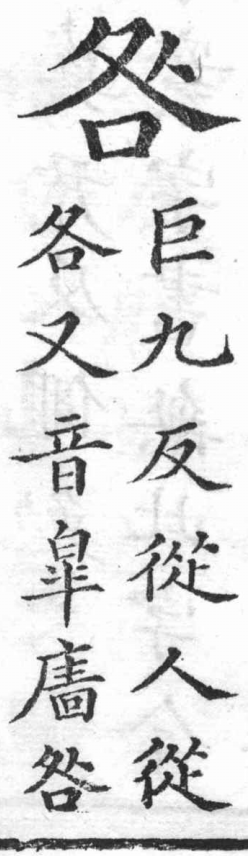 咎
巨九反從人從
各又音皐廧咎